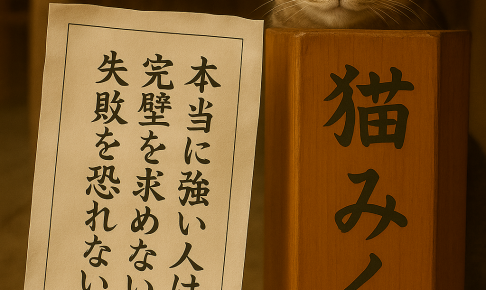 本当に強い人は
完璧を求めない
失敗を恐れない
猫み